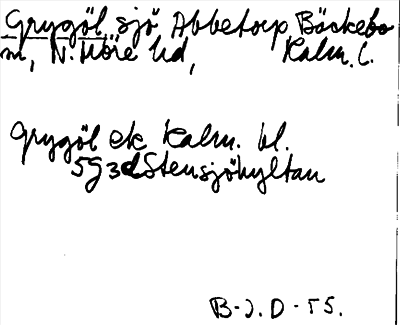 Grygöl sjö Abbetorp, Bäckebo
m, N. Möre hd, Kalm. l.
Grygöl ek Kalm. bl.
5G3d Stensjöhyltan
B-J. D-55.